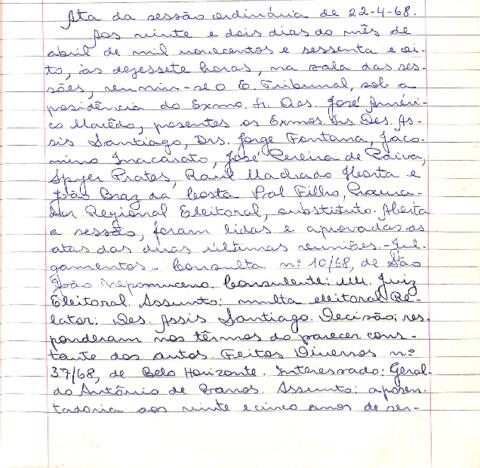 Ata da sessão ordinária de 22-4-68.
Aos vinte e dois dias do mês de
abril de mil novecentos e sessenta e oi-
to, às dezessete horas, na sala das ses-
sões, reuniu-se o E. Tribunal, sob a
presidência do Exmo. Sr. Des. José Améri-
co Macêdo, presentes os Exmos. Srs. Des. As-
sis Santiago, Drs. Jorge Fontana, Jaco-
mino Inacarato, José Pereira de Paiva,
Spyer Prates, Raul Machado Horta e
João Braz da Costa Val Filho, Procura-
dor Regional Eleitoral, substituto. Aberta
a sessão, foram lidas e aprovadas as
atas das duas últimas reuniões. - Jul-
gamentos - Consulta nº 10/68, de São
João Nepomuceno. Consulente: MM. Juiz
Eleitoral. Assunto: multa eleitoral. Re-
lator: Des. Assis Santiago. Decisão: res-
ponderam nos têrmos do parecer cons-
tante dos autos. Feitos Diversos nº
37/68, de Belo Horizonte. Interessado: Geral-
do Antônio de Assunto: aposen-
tadoria aos vinte e cinco anos de ser-